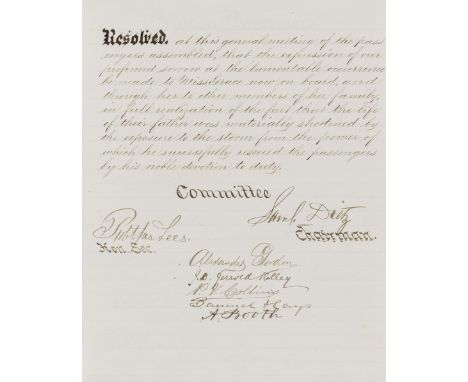 Resolved. at this general meeting of the pass
engers assembled, that the expression of our
profound sorrow at the lamentable occurrence
be made to Miss Grace now on board, and
through her to other members of her family,
in full realization of the fact that the life
of their father was materially shortened by
the exposure to the storm from the power of
which he successfully rescued the passengers
by his noble devotion to duty.
Committee
Saml. Dietz
Chairman.
Robt. Jas. Lees
Hon. Sec.
Alexander Gordon
J.D. Jerrold Kelley
P. V. Collins
Samuel Hays
A. Booth